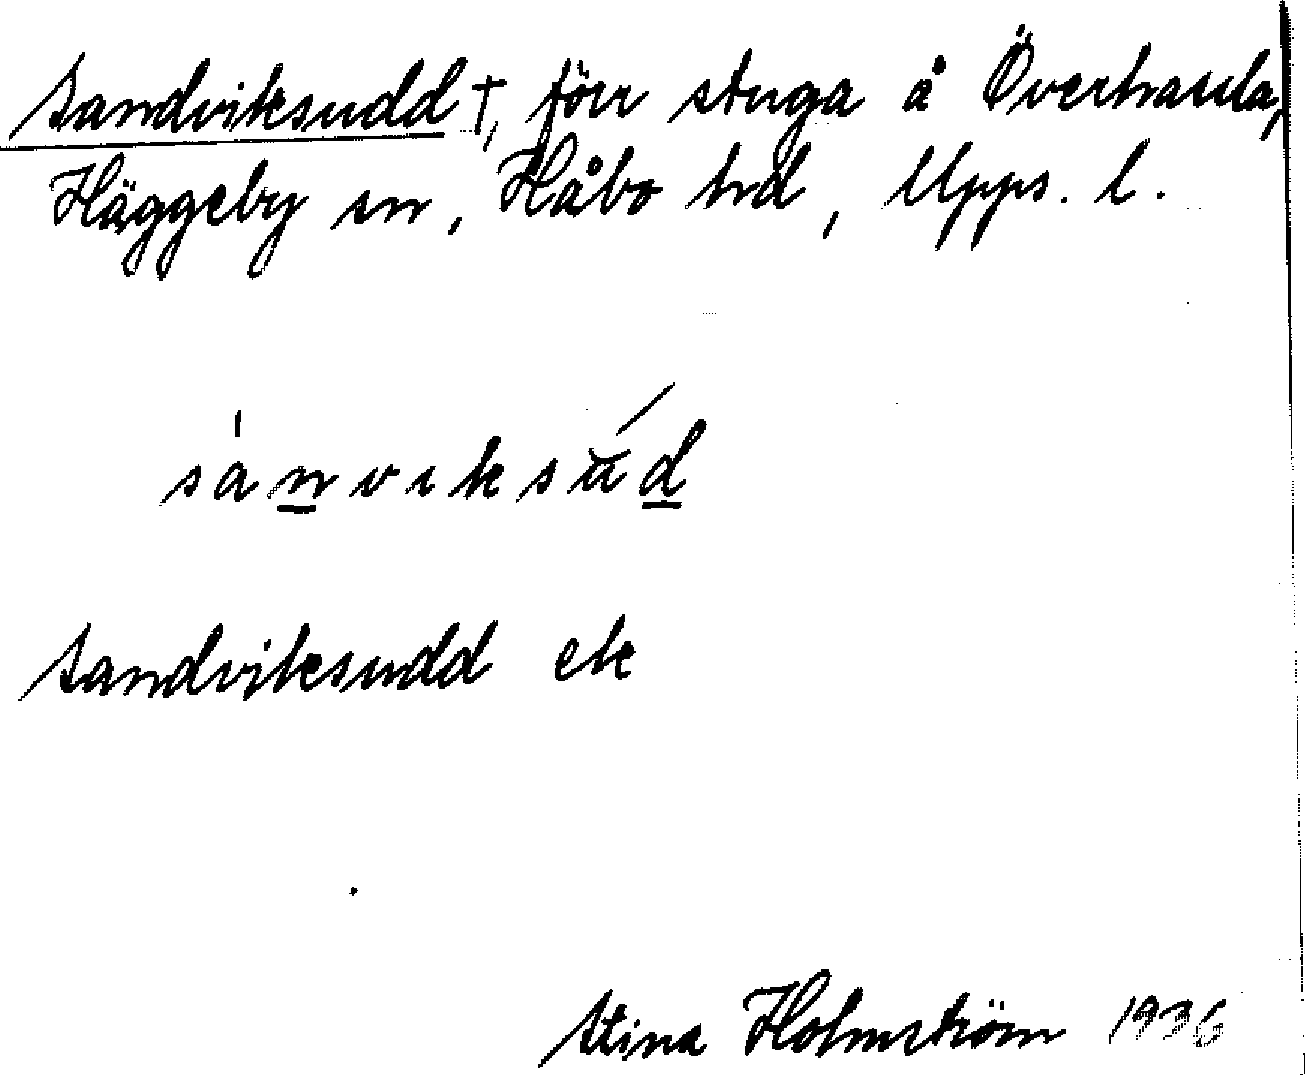 Sandviksudd †, förr stuga å Överhassla,
Häggeby sn, Håbo hd, Upps. l.
sanviksud
Sandviksudd ek
Stina Holmström 1936